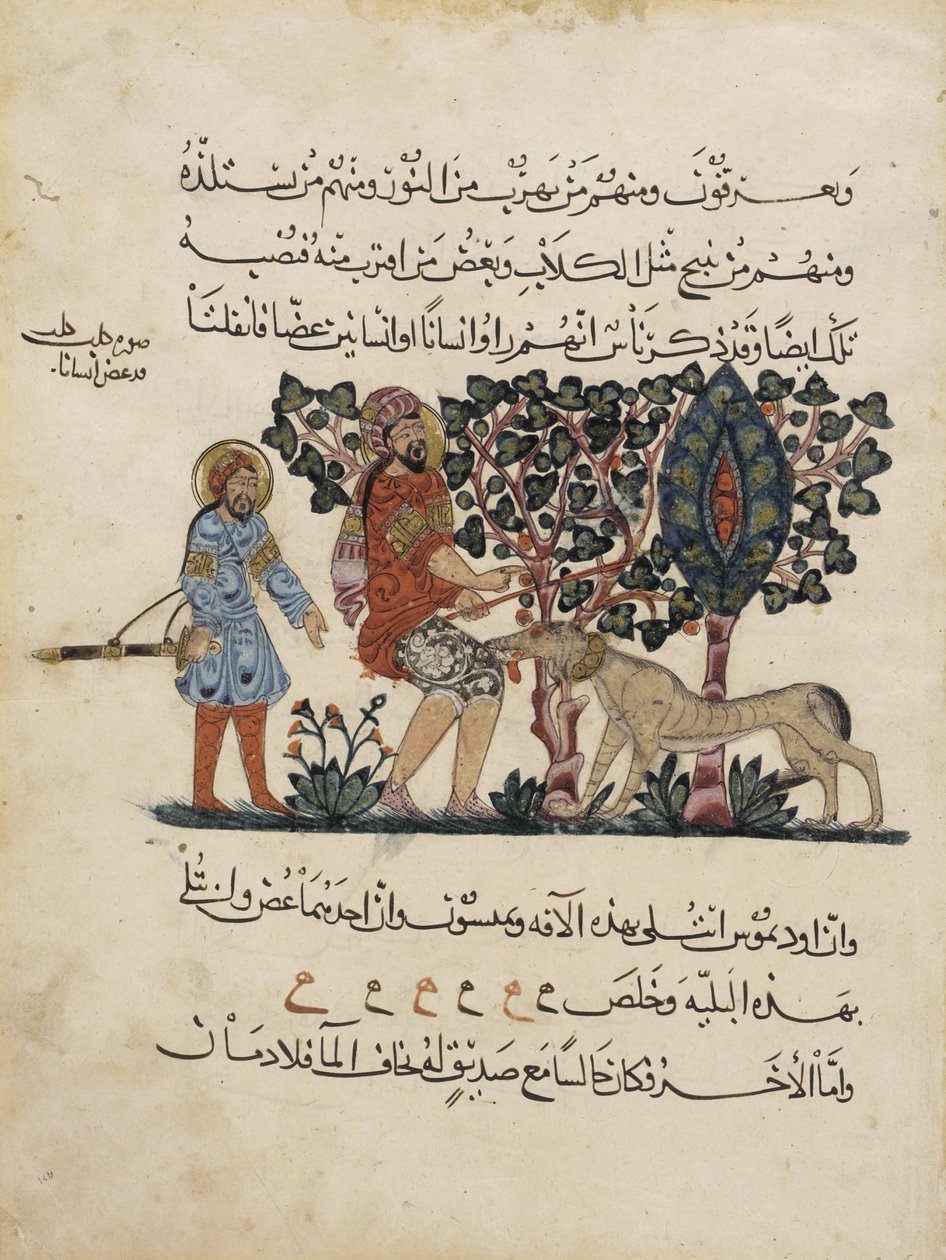 وىعرقون ومنهم من يهرب من النور ومنهم من يستلذه
ومنهم من ينبح مثل الكلاب ويعض من اقترب منه فتصيبه
تلك ايضا وقد ذكر ناس انهم راوا انسانا او انسانين عضا فانفلتا
صورة كلب كلب
قد عض انسانا
وان اوديموس ابتلى بهذه الآفه وان احدهما عض وابتلى
بهذه البليه وخلص
واما الأخر فكان جالسا مع صديق له يخاف الما فلا دمان